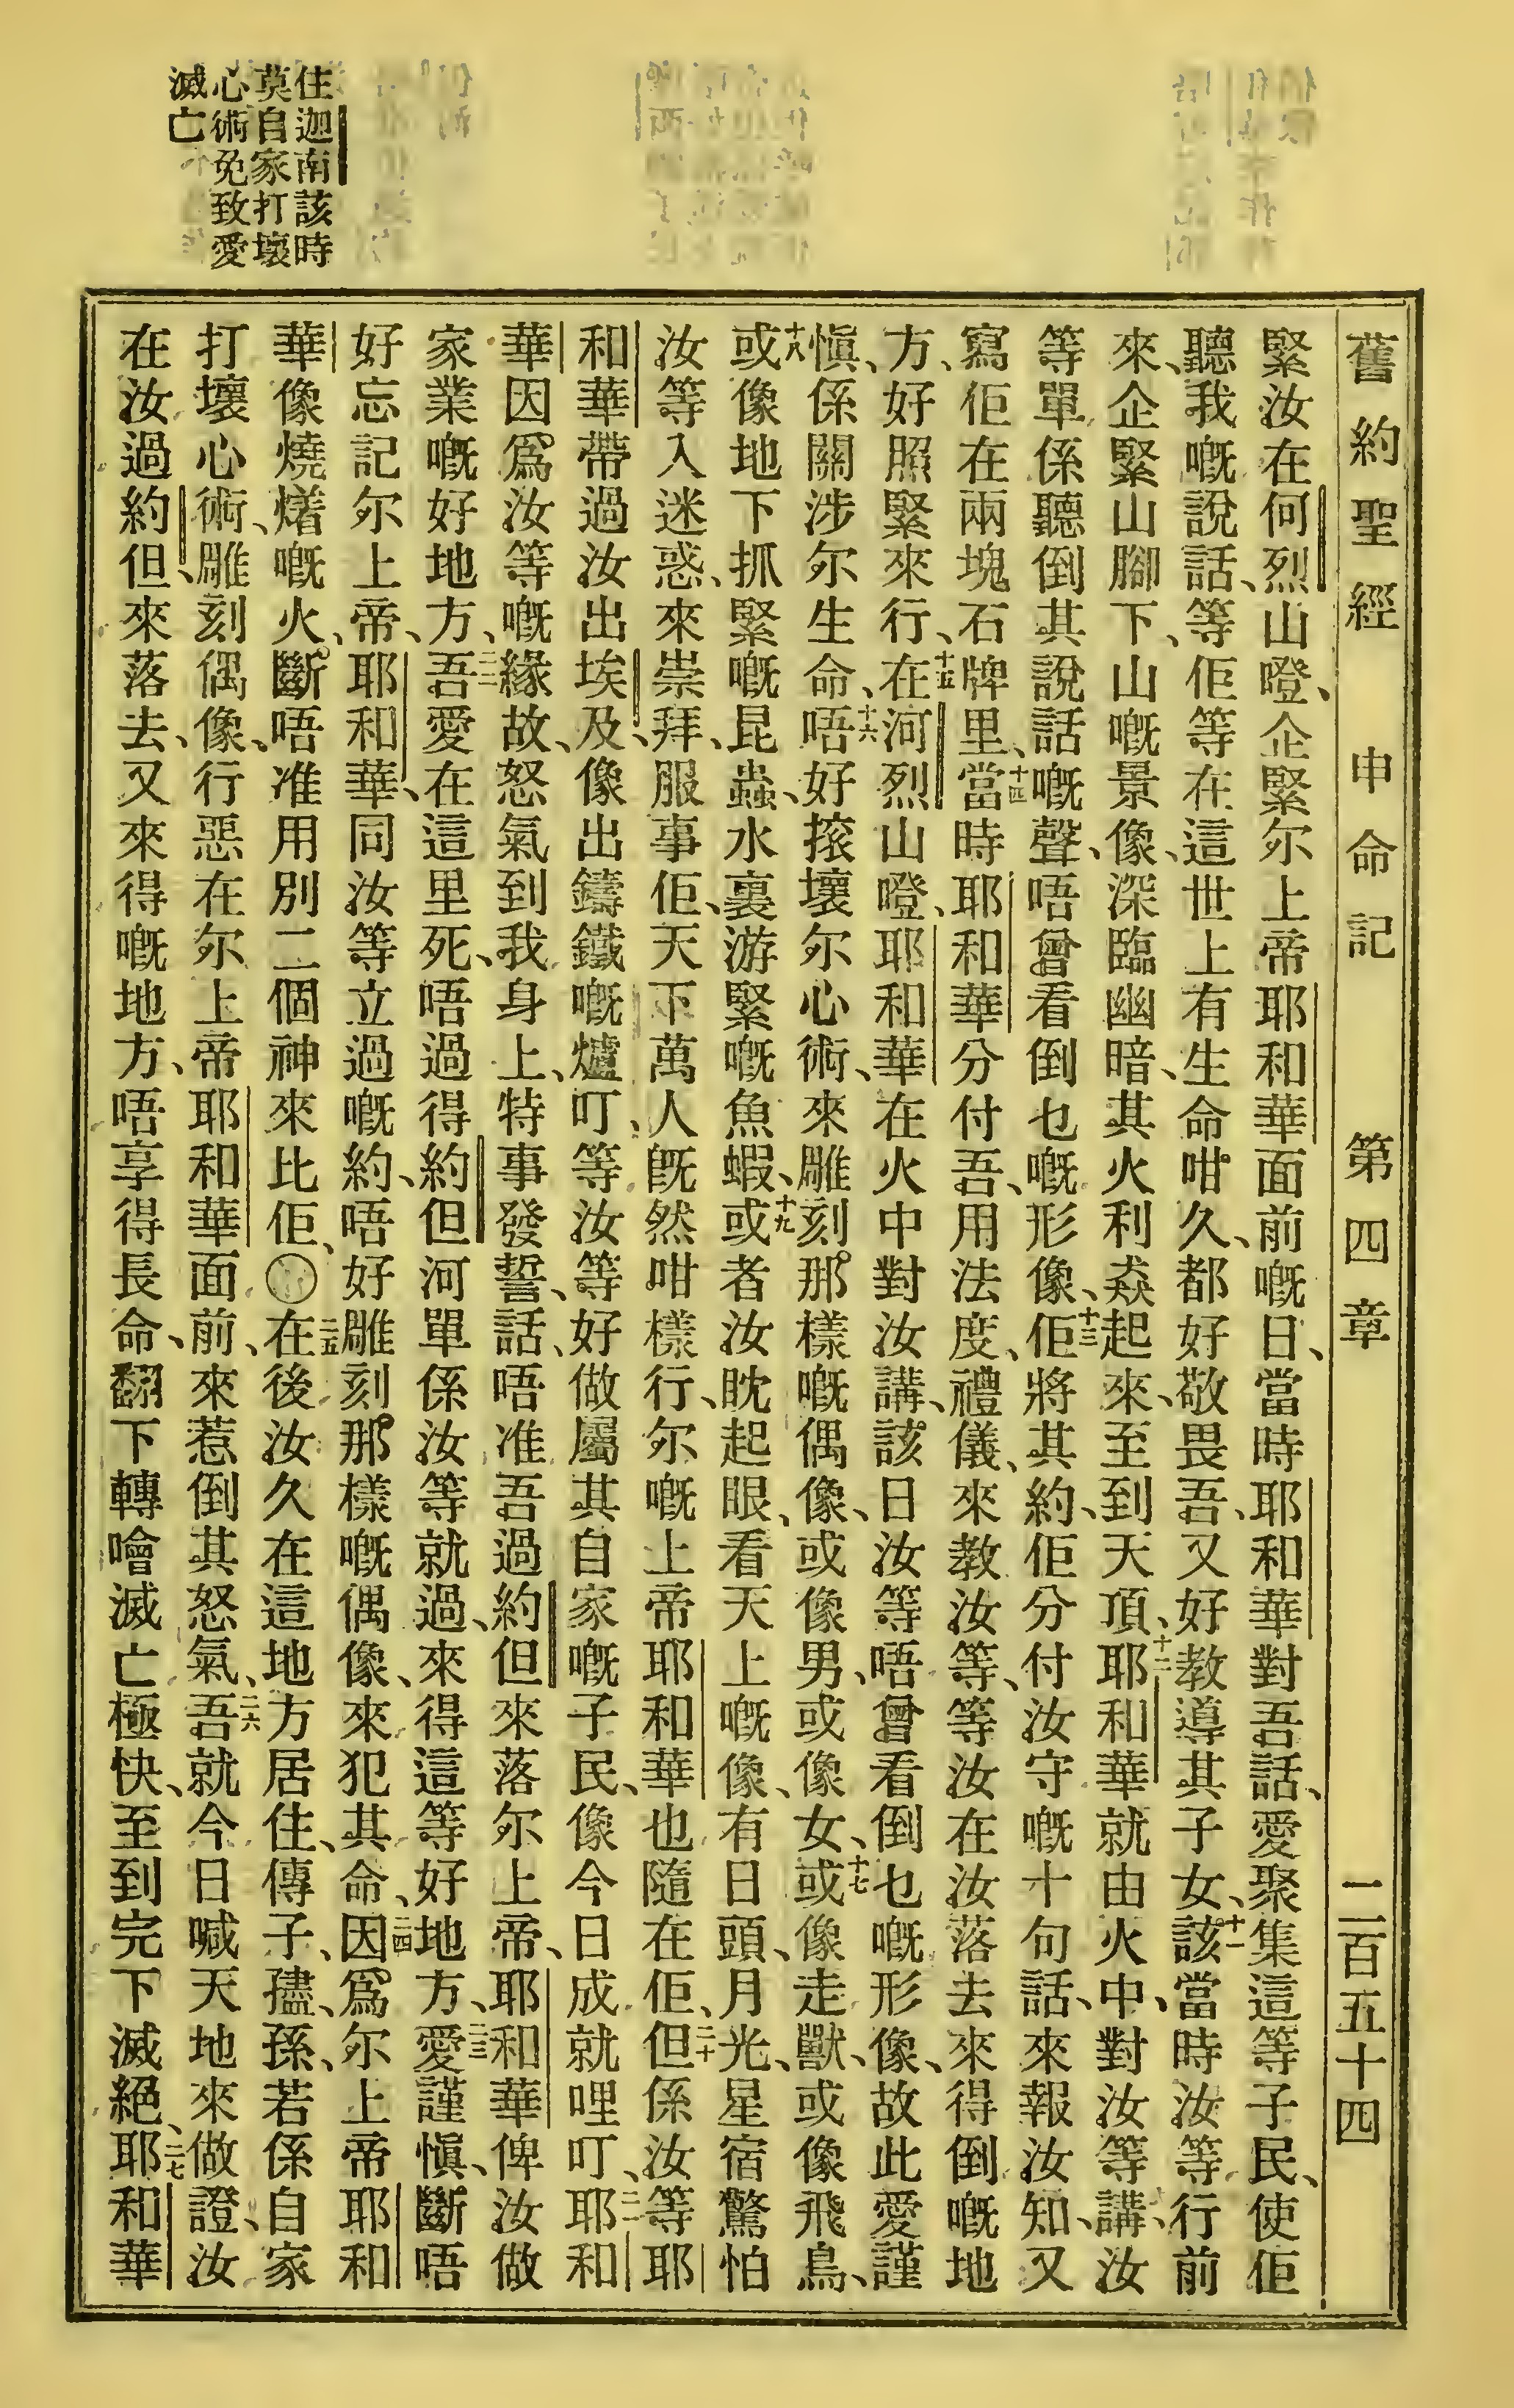 舊約聖經 申命記 第四章 二百五十四
緊汝在何烈山嶝、企緊尔上帝耶和華面前嘅日、當時耶和華對吾話、愛聚集這等子民、使佢
聽我嘅說話、等佢等在這世上有生命咁久、都好敬畏吾、又好教導其子女、十一該當時汝等行前
來、企緊山腳下、山嘅景像、深臨幽暗、其火利猋起來、至到天頂、十二耶和華就由火中、對汝等講、汝
等單係聽倒其說話嘅聲、唔曾看倒乜嘅形像、十三佢將其約、佢分付汝守嘅十句話、來報汝知、又
寫佢在兩塊石牌里、十四當時耶和華分付吾、用法度、禮儀、來教汝等、等汝在汝落去來得倒嘅地
方、好照緊來行、十五在河烈山嶝、耶和華在火中對汝講、該日汝等唔曾看倒乜嘅形像、故此愛謹
愼、係關涉尔生命、十六唔好𢲵壞尔心術、來雕刻那樣嘅偶像、或像男、或像女、十七或像走獸、或像飛鳥、
十八或像地下抓緊嘅昆蟲、水裏游緊嘅魚蝦、十九或者汝眈起眼、看天上嘅像、有日頭、月光、星宿、驚怕
汝等入迷惑、來崇拜、服事佢、天下萬人旣然咁樣行、尔嘅上帝耶和華也隨在佢、二十但係汝等耶
和華帶過汝出埃及、像出鑄鐵嘅爐叮、等汝等好做屬其自家嘅子民、像今日成就哩叮、二一耶和
華因爲汝等嘅緣故、怒氣到我身上、特事發誓話、唔准吾過約但來落尔上帝、耶和華俾汝做
家業嘅好地方、二二吾愛在這里死、唔過得約但河單係汝等就過、來得這等好地方、二三愛謹愼、斷唔
好忘記尔上帝、耶和華、同汝等立過嘅約、唔好雕刻那樣嘅偶像、來犯其命、二四因爲尔上帝耶和
華像燒𤏸嘅火、斷唔准用別二個神來比佢、〇二五在後汝久在這地方居住、傳子、孻孫、若係自家
打壞心術、雕刻偶像、行惡在尔上帝耶和華面前、來惹倒其怒氣、二六吾就今日喊天地來做證、汝
在汝過約但、來落去、又來得嘅地方、唔享得長命、翻下轉噲滅亡極快、至到完下滅絕、二七耶和華
住迦南該時
莫自家打壞
心術免致愛
滅亡